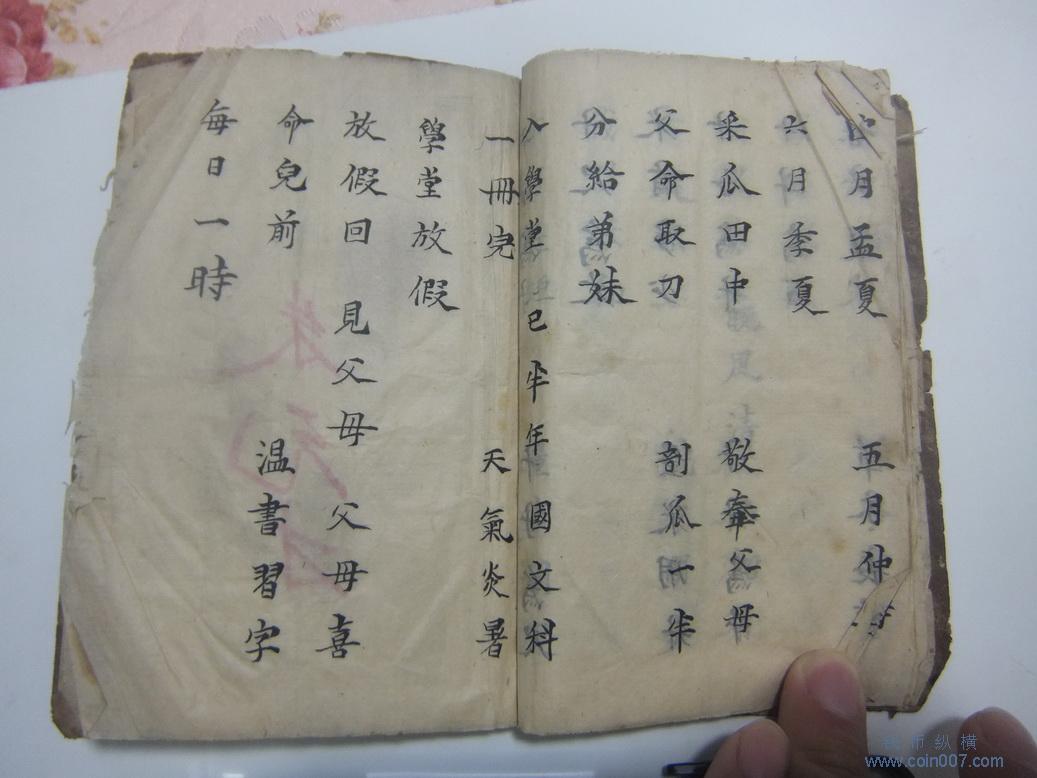 四月孟夏 五月仲夏
六月季夏
采瓜田中 敬奉父母
父命取刀 剖瓜一半
分給弟妹
入學堂已半年國文科
一冊完 天氣炎暑
學堂放假
放假回 見父母 父母喜
命兒前 温書習字
每日一時
纵横
www.coin007.com